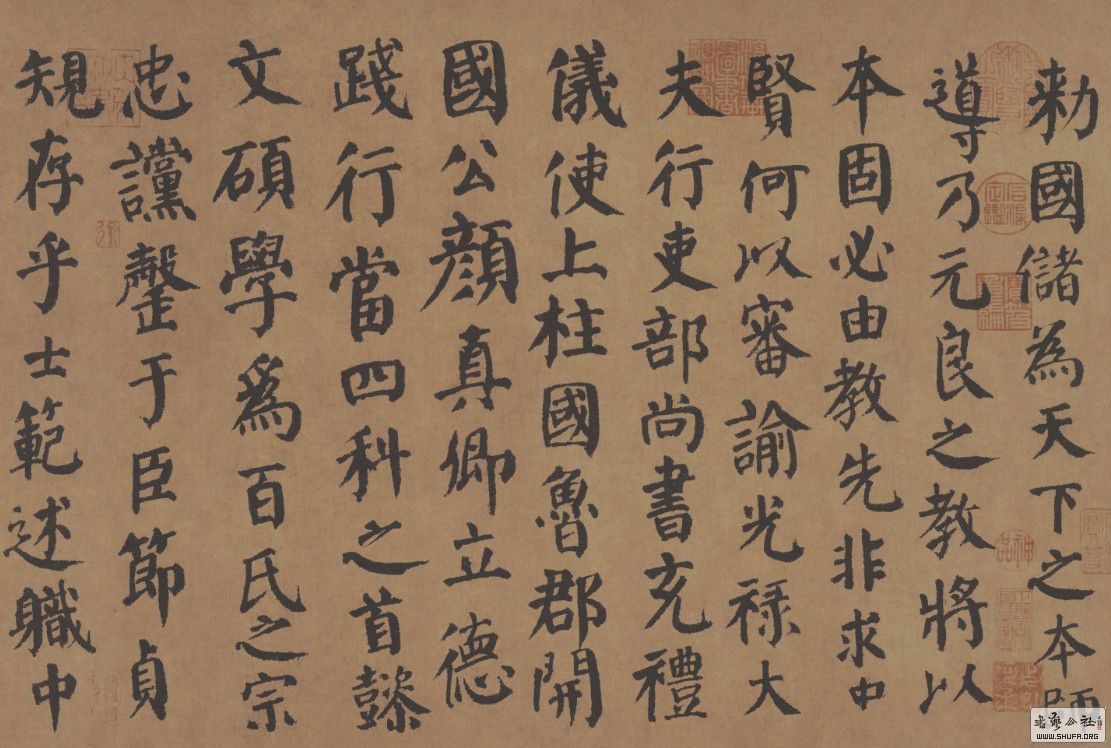 勑國儲為天下之本師
導乃元良之教將以
本固必由教先非求中
賢何以審諭光禄大
夫行吏部尚書充禮
儀使上柱國魯郡開
國公顏真卿立德
踐行當四科之首懿
文碩學爲百氏之宗
忠讜罄于臣節貞
䂓存乎士範述軄中
WWW.SHUFA.ORG